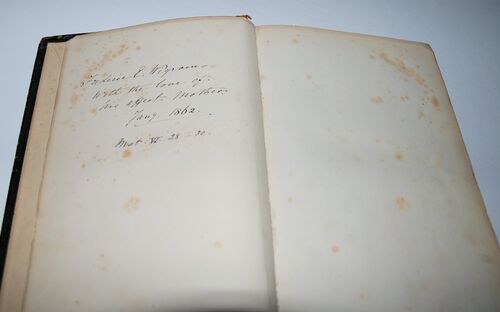 Frederic E. Wigram
With the love of
his affect. Mother
Jany 1862.
Mat. VI. 28-30.